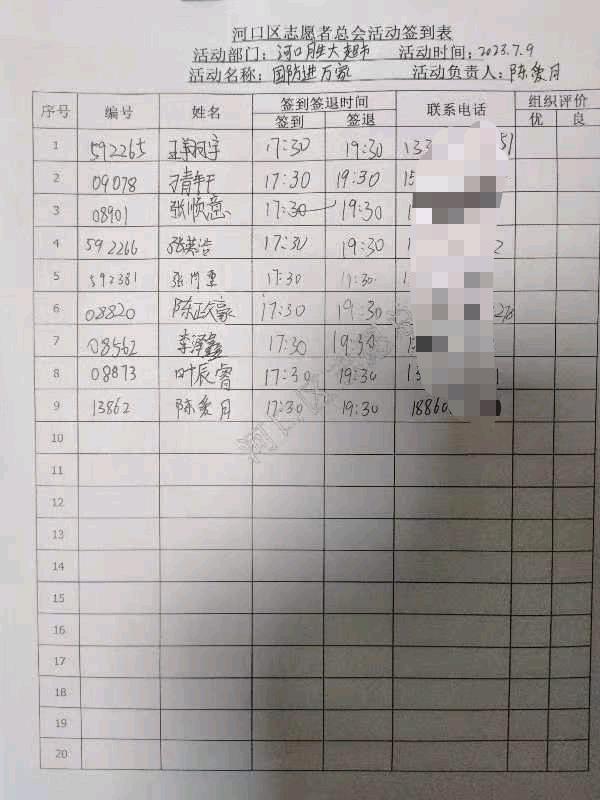 河口区志愿者总会活动签到表
活动部门：河口胜大超市 活动时间：2023.7.9
活动名称：国防进万家 活动负责人：陈爱月
序号 编号 姓名 签到签退时间 联系电话 组织评价
签到 签退 优 良
1 592265 17:30 19:30 133 51
2 09078 17:30 19:30 15
3 08901 张顺意 17:30 19:30
4 592266 张英浩 17:30 19:30 2
5 592381 张 17:30 19:30
6 08820 陈政豪 17:30 19:30
7 08562 李泽鑫 17:30 19:30
8 08873 叶辰睿 17:30 19:30 13 1
9 13862 陈爱月 17:30 19:30 18860
10
11
12
13
14
15
16
17
18
19
20